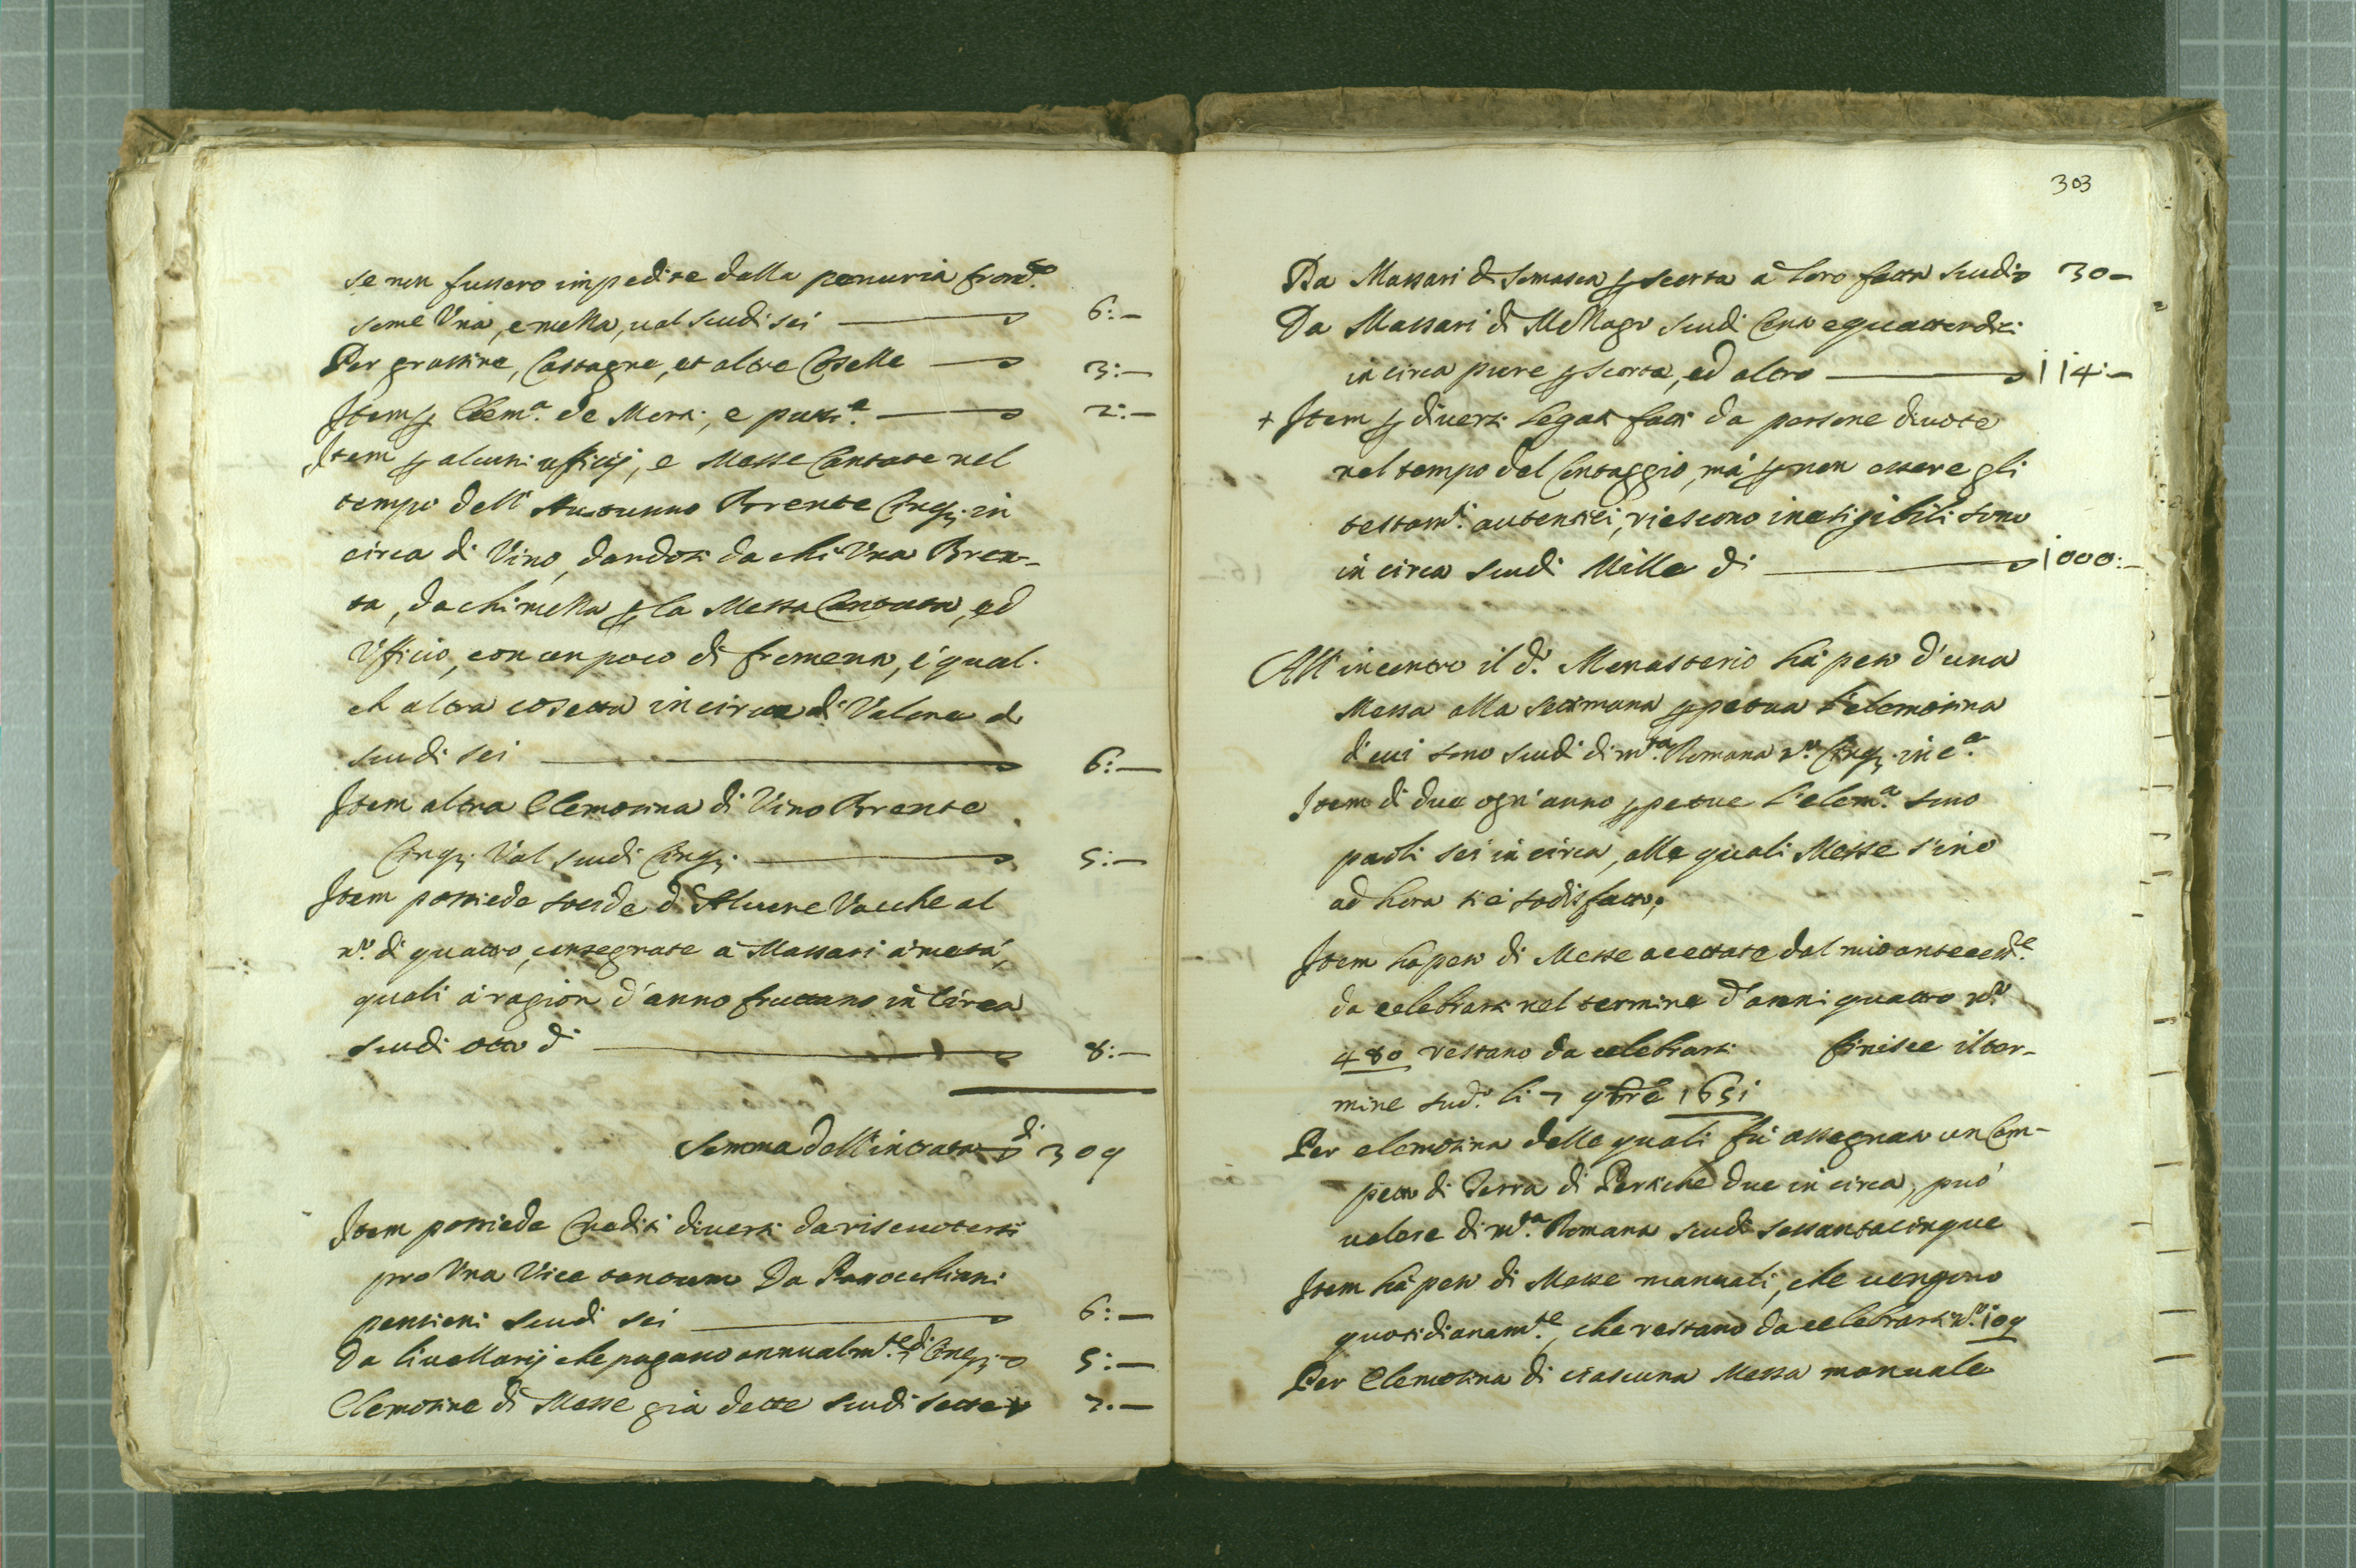 se non fussero impedite dalla penuria
some Una, e mella, val scudi sei 6:—
Per grassine, Castagne, et altre Coselle 3:—
Item p Elem.a de Morti, e putti.a 2:—
Item p alcuni ufficij, e Messe Cantate nel
tempo dell'Autunno Brente Cinq; in
circa di Vino, dandosi da chi Una Bren-
ta, da chi mella p la Messa Cantata, ed
Ufficio, con un poco di formento, è qual-
ch altra cosetta in circa di Valore d
scudi sei 6:—
Item altra Elemosina di Vino Brente
Cinq; Val scudi Cinq; 5:—
Item possiede soccide d'Alcune Vacche al
n.o di quattro, consegnate à Massari à metà,
quali à ragion d'anno fruttano in Circa
scudi otto di 8:—
Somma dell'intrata di 309
Item possiede Crediti diversi da riscuotersi
pro Una Vice tantum Da Parocchiani
pensieri scudi sei 6:—
Da livellarij che pagano annualm.te di Cinq; 5:—
Elemosine di Messe già dette scudi sette 7.—
303
Da Massari di Somasca p scorta à loro fatta scudi 30—
Da Massari di scudi Cento e quattordici
in circa pure p scorta, ed altro 114:—
+ Item p diversi Legati fatti da persone divote
nel tempo del Contaggio, mà p non essere gli
testam.ti autentici, riescono inesigibili sono
in circa scudi Mille di 1000:—
All'incontro il d.o Monasterio hà peso d'una
Messa alla settimana ppetua l'elemosina
di cui sono scudi di m.ta Romana n.o Cinq; in c.a
Item di due ogn'anno ppetue l'elem.a sono
paoli sei in circa, alle quali Messe sino
ad hora si è sodisfatto;
Item hà peso di Messe accettate dal mio anteced.e
da celebrarsi nel termine d'anni quattro n.o
480 restano da celebrarsi finisce il ter-
mine sud.o li 7 9bre 1651
Per elemosina delle quali fù assegnato un Cam-
petto di Terra di Pertiche due in circa, può
valere di m.ta Romana scudi sessantacinque
Item hà peso di Messe manuali, che vengono
quotidianam.te, che restano da celebrarsi n.o 109
Per Elemosina di ciascuna Messa manuale